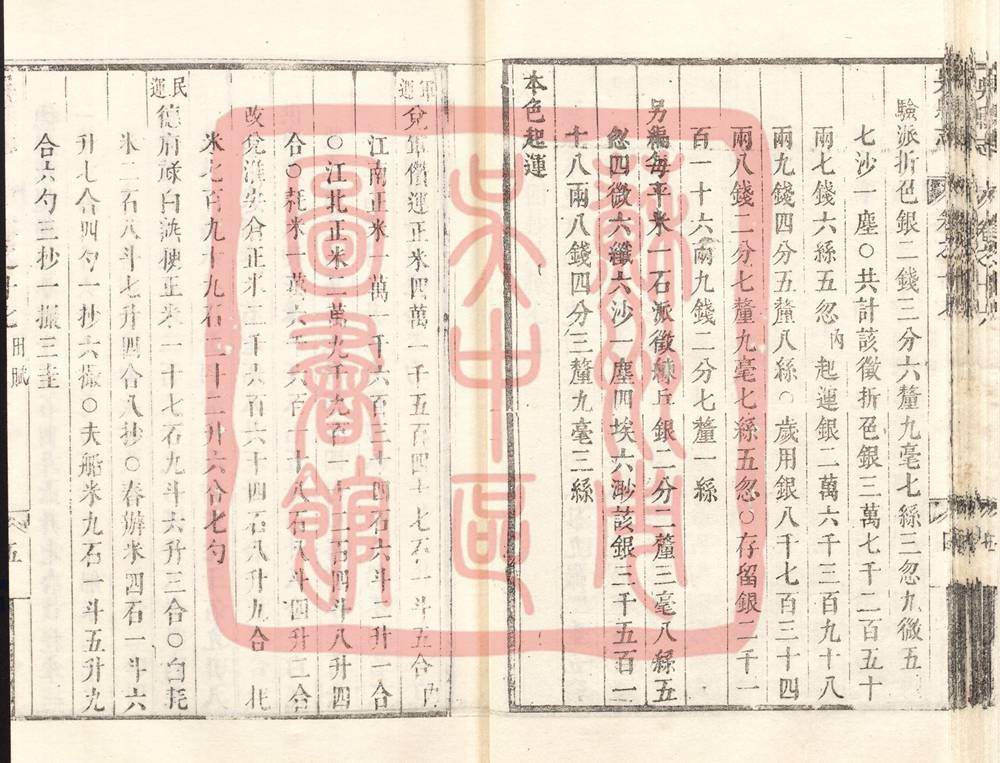 驗派折色銀二錢三分六釐九毫七絲三忽九微五
七沙一塵○共計該徵折色銀三萬七千二百五十
兩七錢六絲五忽內起運銀二萬六千三百九十八
兩九錢四分五釐八絲○歲用銀八千七百三十四
兩八錢二分七釐九毫七絲五忽○存留銀二千一
百一十六兩九錢二分七釐一絲
另編每平米一石派徵練兵銀二分二釐三毫八絲五
忽四微六纖六沙一塵四埃六渺該銀三千五百二
十八兩八錢四分三釐九毫三絲
本色起運
軍運
兌軍儹運正米四萬一千五百四十七石一斗五合內
江南正米一萬一千六百三十四石六斗二升一合
○江北正米二萬九千九百一十二石四斗八升四
合○耗米一萬六千六百一十八石八斗四升二合
改兌淮安倉正米二千六百六十四石八升九合 北
米七百九十九石二斗二升六合七勺
民運
德府祿白熟粳正米一十七石九斗六升三合○白耗
米二石八斗七升四合八抄○舂辦米四石一斗六
升七合四勺一抄六撮○夫船米九石一斗五升九
合六勺三抄一撮三圭
田賦
五
蘇州市吳中區圖書館